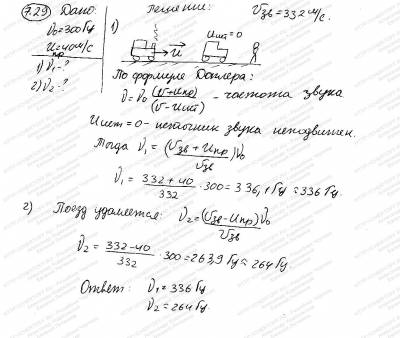 7.29 Дано: Решение: υзв = 332 м/с.
ν₀ = 300 Гц
Uпр = 40 м/с
1) ν₁ - ?
2) ν₂ - ?
1)
Uист = 0
u
По формуле Доплера:
ν = ν₀ (υ + Uпр) / (υ - Uист) - частота звука
Uист = 0 - источник звука неподвижен.
Тогда ν₁ = (υзв + Uпр) ν₀ / υзв
ν₁ = (332 + 40) / 332 · 300 = 336,1 Гц ≈ 336 Гц.
2) Поезд удаляется: ν₂ = (υзв - Uпр) ν₀ / υзв
ν₂ = (332 - 40) / 332 · 300 = 263,9 Гц ≈ 264 Гц.
Ответ: ν₁ = 336 Гц
ν₂ = 264 Гц.